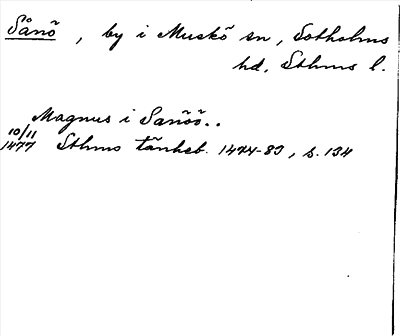 Sånö, by i Muskö sn, Sotholms
hd, Sthms l.
Magnus i Sanöö..
10/11
1477 Sthms tänkeb. 1474-83, s. 134